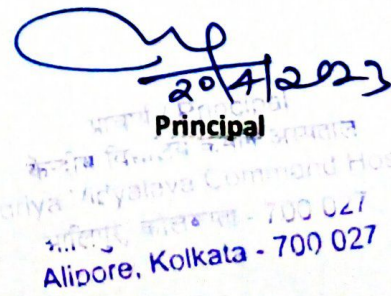 20/4/2023
Principal
प्राचार्य / Principal
केन्द्रीय विद्यालय कमान अस्पताल
Kendriya Vidyalaya Command Hos
अलीपुर, कोलकाता - 700 027
Alipore, Kolkata - 700 027